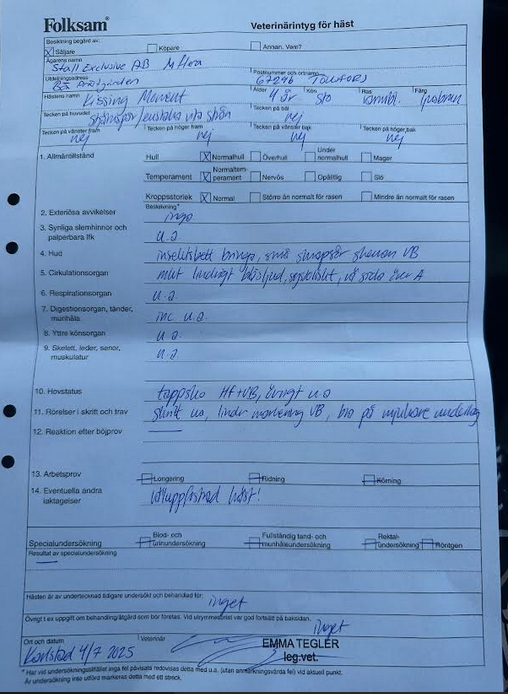 Folksam
Veterinärintyg för häst
Besiktning begärd av:
X Säljare Köpare Annan, Vem?
Ägarens namn
Stall Exclusive AB M flera
Utdelningsadress Postnummer och ortnamn
67296 TÖCKFORS
Hästens namn Ålder Kön Ras Färg
Kissing Moment 4 år sto varmbl.
Tecken på huvudet Tecken på bål
nej
Tecken på vänster fram Tecken på höger fram Tecken på vänster bak Tecken på höger bak
nej nej nej nej
1. Allmäntillstånd Hull X Normalhull Överhull Under normalhull Mager
Temperament X Normaltemperament Nervös Opålitlig Slö
Kroppsstorlek X Normal Större än normalt för rasen Mindre än normalt för rasen
Beskrivning*
2. Exteriöra avvikelser inga
3. Synliga slemhinnor och
palperbara lfk u.a
4. Hud insektsbett bringa, små VB
5. Cirkulationsorgan mkt lindrigt blåsljud, systoliskt, vä sida över A
6. Respirationsorgan u.a.
7. Digestionsorgan, tänder,
munhåla inc u.a
8. Yttre könsorgan u.a
9. Skelett, leder, senor,
muskulatur u.a
10. Hovstatus tappsko HF+VB, övrigt u a
11. Rörelser i skritt och trav skritt ua, lindr markering VB, bra på mjukare underlag
12. Reaktion efter böjprov
13. Arbetsprov Longering Ridning Körning
14. Eventuella andra
iakttagelser Väluppfostrad häst!
Specialundersökning Blod- och urinundersökning Fullständig tand- och munhåleundersökning Rektalundersökning Röntgen
Resultat av specialundersökning
Hästen är av undertecknad tidigare undersökt och behandlad för:
inget
Övrigt t ex uppgift om behandling/åtgärd som bör företas. Vid utrymmesbrist var god fortsätt på baksidan.
inget
Ort och datum Veterinär
Karlstad 4/7 2025 EMMA TEGLER
leg.vet.
* Har vid undersökningstillfället inga fel påvisats redovisas detta med u.a. (utan anmärkningsvärda fel) vid aktuell punkt.
Är undersökning inte utförd markeras detta med ett streck.